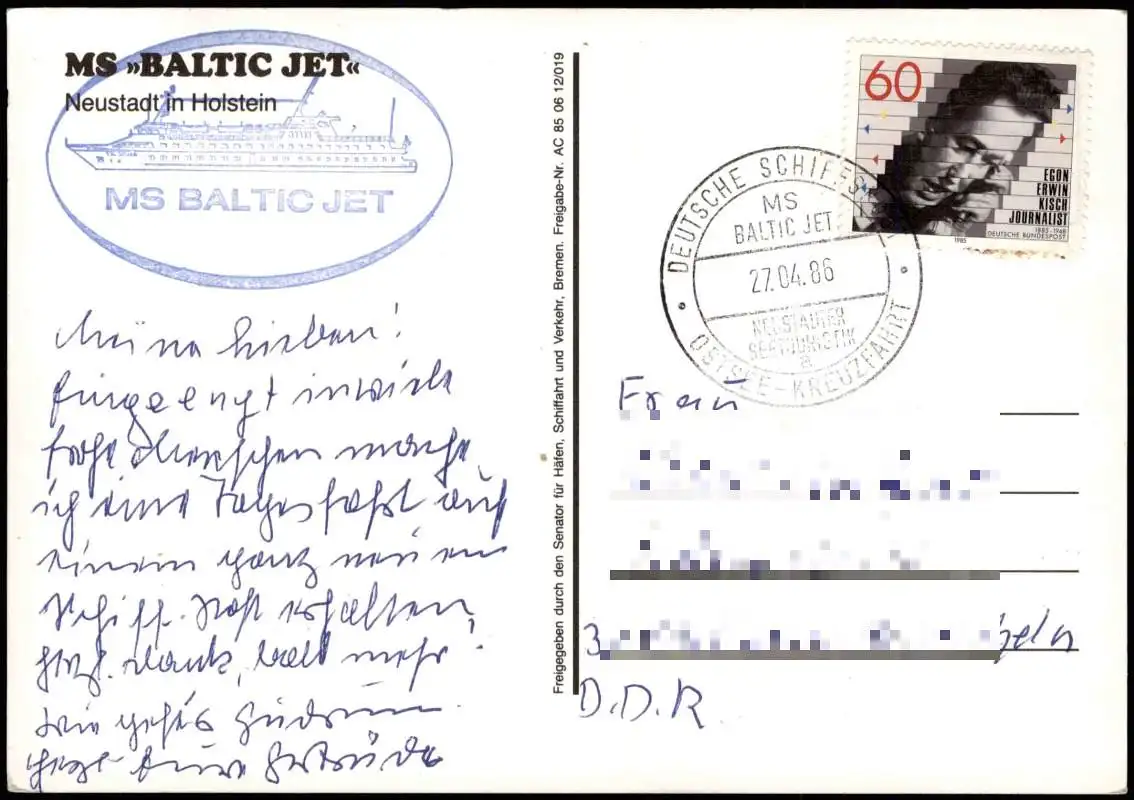 MS »BALTIC JET«
Neustadt in Holstein
MS BALTIC JET
Meine Lieben!
Eingeengt in viele
frohe Menschen mache
ich eine Tagesfahrt auf
einem ganz neuen
Schiff. Post erhalten,
herzl. Dank, bald mehr!
Wie geht's Gudrun
Eure Gertrude
Freigegeben durch den Senator für Häfen, Schiffahrt und Verkehr, Bremen. Freigabe-Nr. AC 85 06 12/019
60
EGON
ERWIN
KISCH
JOURNALIST
1885-1948
DEUTSCHE BUNDESPOST
1985
DEUTSCHE SCHIFFS
MS
BALTIC JET
27.04.86
NEUSTÄDTER
SEETOURISTIK
a
OSTSEE-KREUZFAHRT
Frau
3
D.D.R.